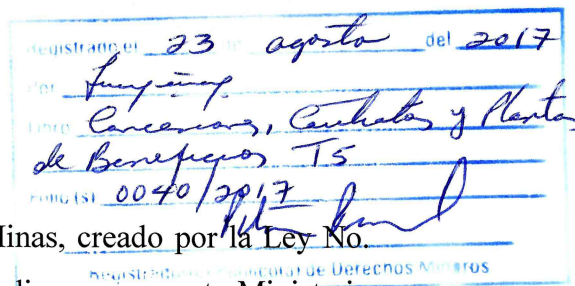 Registrado el 23 de agosto del 2017
Por
Libro Concesiones, Contratos y Plantas
de Beneficios T5
Folio (s) 0040/2017
Minas, creado por la Ley No.
Registrador Público de Derechos Mineros
Ministerio